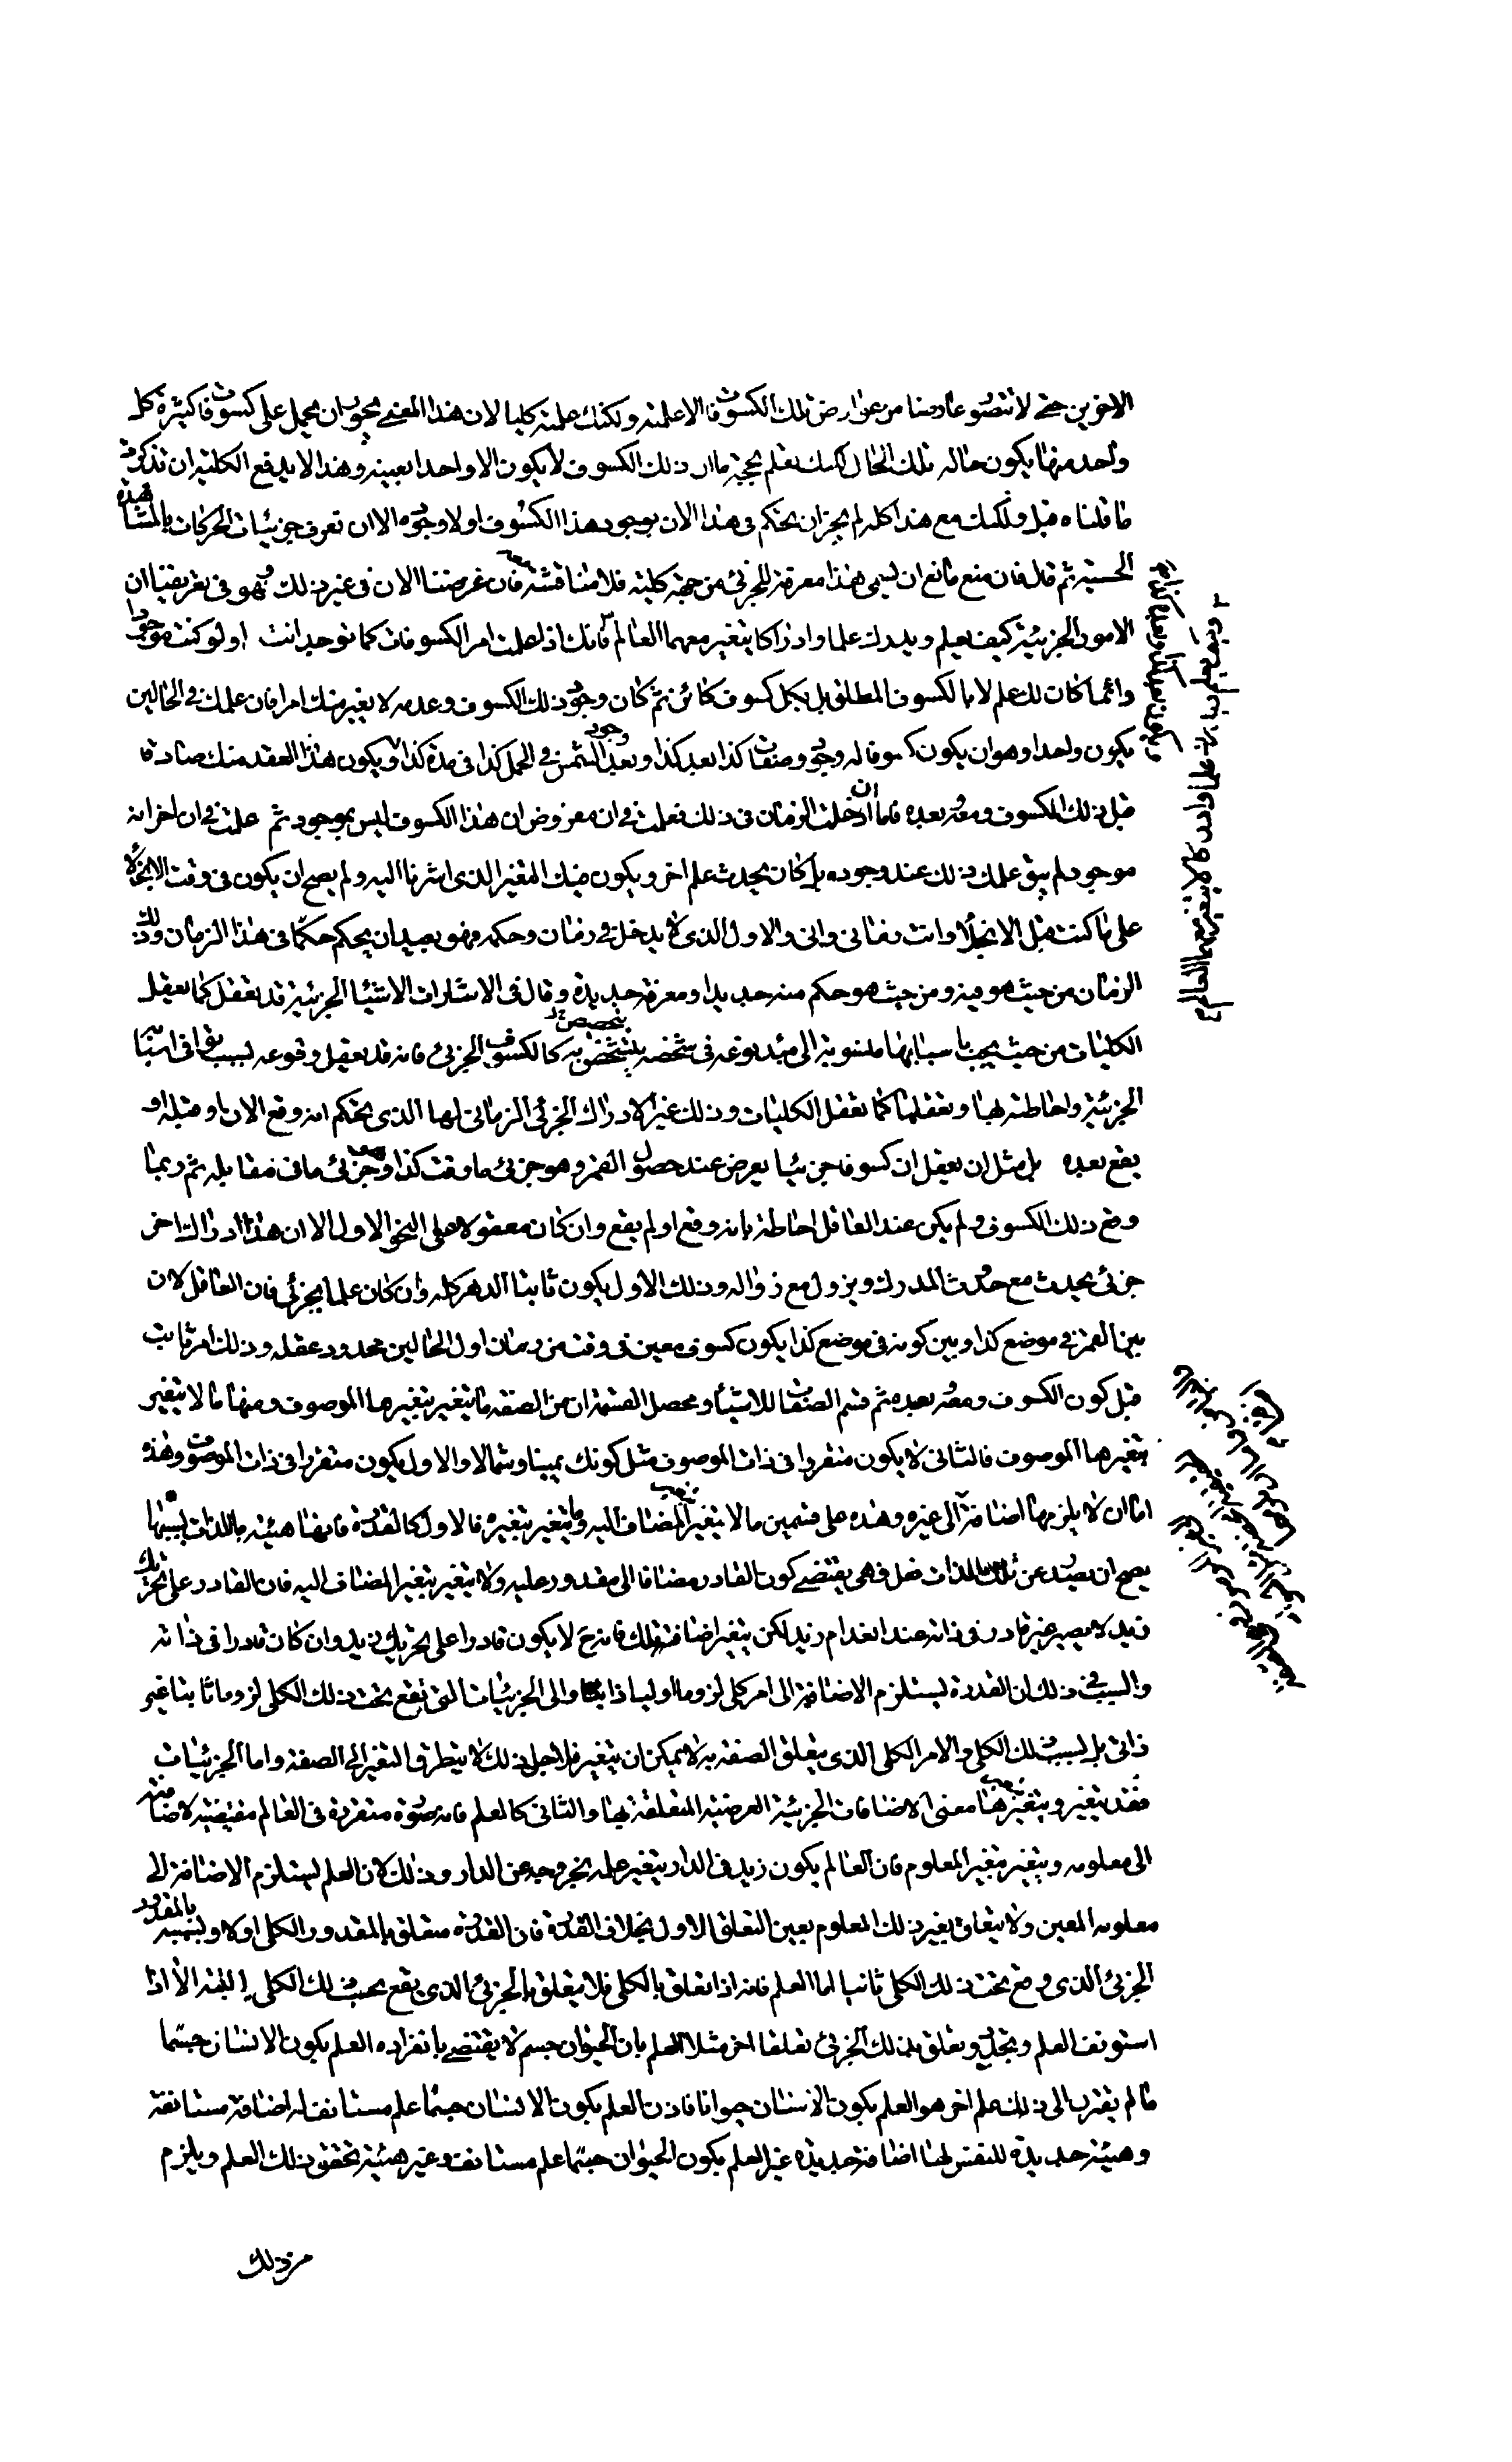 الاخرين حتى لا تتصور عارضا من عوارض ذلك الكسوف الا علمته ولكنك علمته كليا لان هذا المعنى يجوز ان يحمل على كسوفات كثيرة كل
واحد منها يكون حاله تلك الحال لكنك تعلم بحجة ما ان ذلك الكسوف لا يكون الا واحدا بعينه وهذا لا يدفع الكلية ان تذكرت
ما قلناه قبل ولكنك مع هذا كله لم يجز ان تحكم في هذا الان بوجود هذا الكسوف او لا وجوده الا ان تعرف جزئيات الحركات بالمشاهدة
الحسية ثم قال فان منع مانع ان يسمى هذا معرفة للجزئي من جهة كلية فلا مناقشة فان غرضنا الان في غير ذلك وهو في تعريفنا ان
الامور الجزئية كيف يعلم ويدرك علما وادراكا يتغير معهما العالم فانك اذا علمت امر الكسوفات كما توجد انت او لو كنت موجودا
دائما كان لك علم لا بالكسوف المطلق بل بكل كسوف كائن ثم كان وجود ذلك الكسوف وعدمه لا يغير منك امرا فان علمك في الحالين
يكون واحدا وهو ان يكون كسوفا له وجود وصفات كذا بعد كذا وبعد وجود الشمس في الحمل كذا في مدة كذا ويكون هذا العقد منك صادقا
قبل ذلك الكسوف ومعه وبعده فاما ان ادخلت الزمان في ذلك فعلمت في ان مفروض ان هذا الكسوف ليس بموجود ثم علمت في ان اخر انه
موجود لم يبق علمك ذلك عند وجوده بل كان يحدث علم اخر ويكون فيك التغير الذي اشرنا اليه ولم يصح ان يكون في وقت الانجلاء
على ما كنت قبل الانجلاء وانت زماني واني والاول الذي لا يدخل في زمان وحكمه فهو بعيد ان يحكم حكما في هذا الزمان وذلك
الزمان من حيث هو فيه ومن حيث هو حكم منه جديد او معرفة جديدة وقال في الاشارات الاشياء الجزئية قد تعقل كما تعقل
الكليات من حيث يجب باسبابها منسوبة الى مبدء نوعه في شخصه يتخصص به كالكسوف الجزئي فانه قد يعقل وقوعه بسبب توافي اسبابه
الجزئية واحاطته بها وتعقلها كما تعقل الكليات وذلك غير الادراك الجزئي الزماني لها الذي يحكم انه وقع الان او قبله او
يقع بعده بل مثل ان تعقل ان كسوفا جزئيا يعرض عند حصول القمر وهو جزئي ما وقت كذا وهو جزئي ما في مقابله ثم ربما
وقع ذلك الكسوف ولم يكن عند العاقل احاطة بانه وقع او لم يقع وان كان معقولا على النحو الاول لان هذا ادراك اخر
جزئي يحدث مع حدوث المدرك ويزول مع زواله وذلك الاول يكون ثابتا الدهر كله وان كان علما بجزئي فان العاقل لان
بين القمر في موضع كذا وبين كونه في موضع كذا يكون كسوف معين في وقت من زمان اول الحالين محدود عقله وذلك امر ثابت
قبل كون الكسوف ومعه وبعده ثم قسم الصفات للاشياء ومحصل القسمة ان من الصفة ما يتغير بتغيرها الموصوف ومنها ما لا يتغير
بتغيرها الموصوف فالثاني لا يكون متقررا في ذات الموصوف مثل كونك يمينا وشمالا والاول يكون متقررا في ذات الموصوف وهذه
اما ان لا يلزمها اضافة الى غيره وهذه على قسمين ما لا يتغير بتغير المضاف اليه وما يتغير بتغيره فالاول كالقدرة فانها هيئة بالذات بسببها
يصح ان يصدر عن تلك الذات فعل فهي يقتضي كون القادر مضافا الى مقدور عليه ولا يتغير بتغير المضاف اليه فان القادر على تحريك
زيد لا يصير غير قادر في ذاته عند انعدام زيد لكن يتغير اضافته تلك فانه ح لا يكون قادرا على تحريك زيد وان كان قادرا في ذاته
والسبب في ذلك ان القدرة يستلزم الاضافة الى امر كلي لزوما اوليا ذاتيا والى الجزئيات التي تقع تحت ذلك الكلي لزوما ثانيا غير
ذاتي بل بسبب ذلك الكلي والامر الكلي الذي يتعلق الصفة به لا يمكن ان يتغير فلاجل ذلك لا يتطرق التغير الى الصفة واما الجزئيات
فقد يتغير وبتغيرها يتغير معنى الاضافات الجزئية العرضية المتعلقة بها والثاني كالعلم فانه صورة متقررة في العالم مقتضية لاضافته
الى معلومه ويتغير بتغير المعلوم فان العالم بكون زيد في الدار يتغير علمه بخروجه عن الدار وذلك لان العلم يستلزم الاضافة الى
معلومه المعين ولا يتعلق بغير ذلك المعلوم بعين التعلق الاول بخلاف القدرة فان القدرة متعلق بالمقدور الكلي اولا وبسببه بالمقدور
الجزئي الذي وقع تحت ذلك الكلي ثانيا اما العلم فانه اذا تعلق بالكلي فلا يتعلق بالجزئي الذي يقع تحت ذلك الكلي البتة الا اذا
استونف العلم وتجدد وتعلق بذلك الجزئي تعلقا اخر مثلا العلم بان الحيوان جسم لا يقتضي بانفراده العلم بكون الانسان جسما
ما لم يقترن الى ذلك علم اخر هو العلم بكون الانسان حيوانا فاذن العلم بكون الانسان جسما علم مستانف له اضافة مستانفة
وهيئة جديدة للنفس لها اضافة جديدة غير العلم بكون الحيوان جسما علم مستانف وغير هيئة تحقق ذلك العلم ويلزم
من ذلك